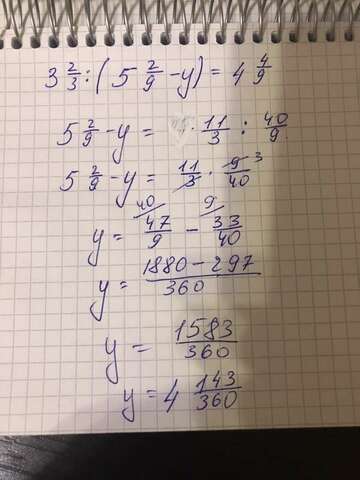 3 2/3 : (5 2/9 - y) = 4 4/9
5 2/9 - y = 11/3 : 40/9
5 2/9 - y = 11/3 · 9/40 3
40 9
y = 47/9 - 33/40
y = 1880 - 297/360
y = 1583/360
y = 4 143/360